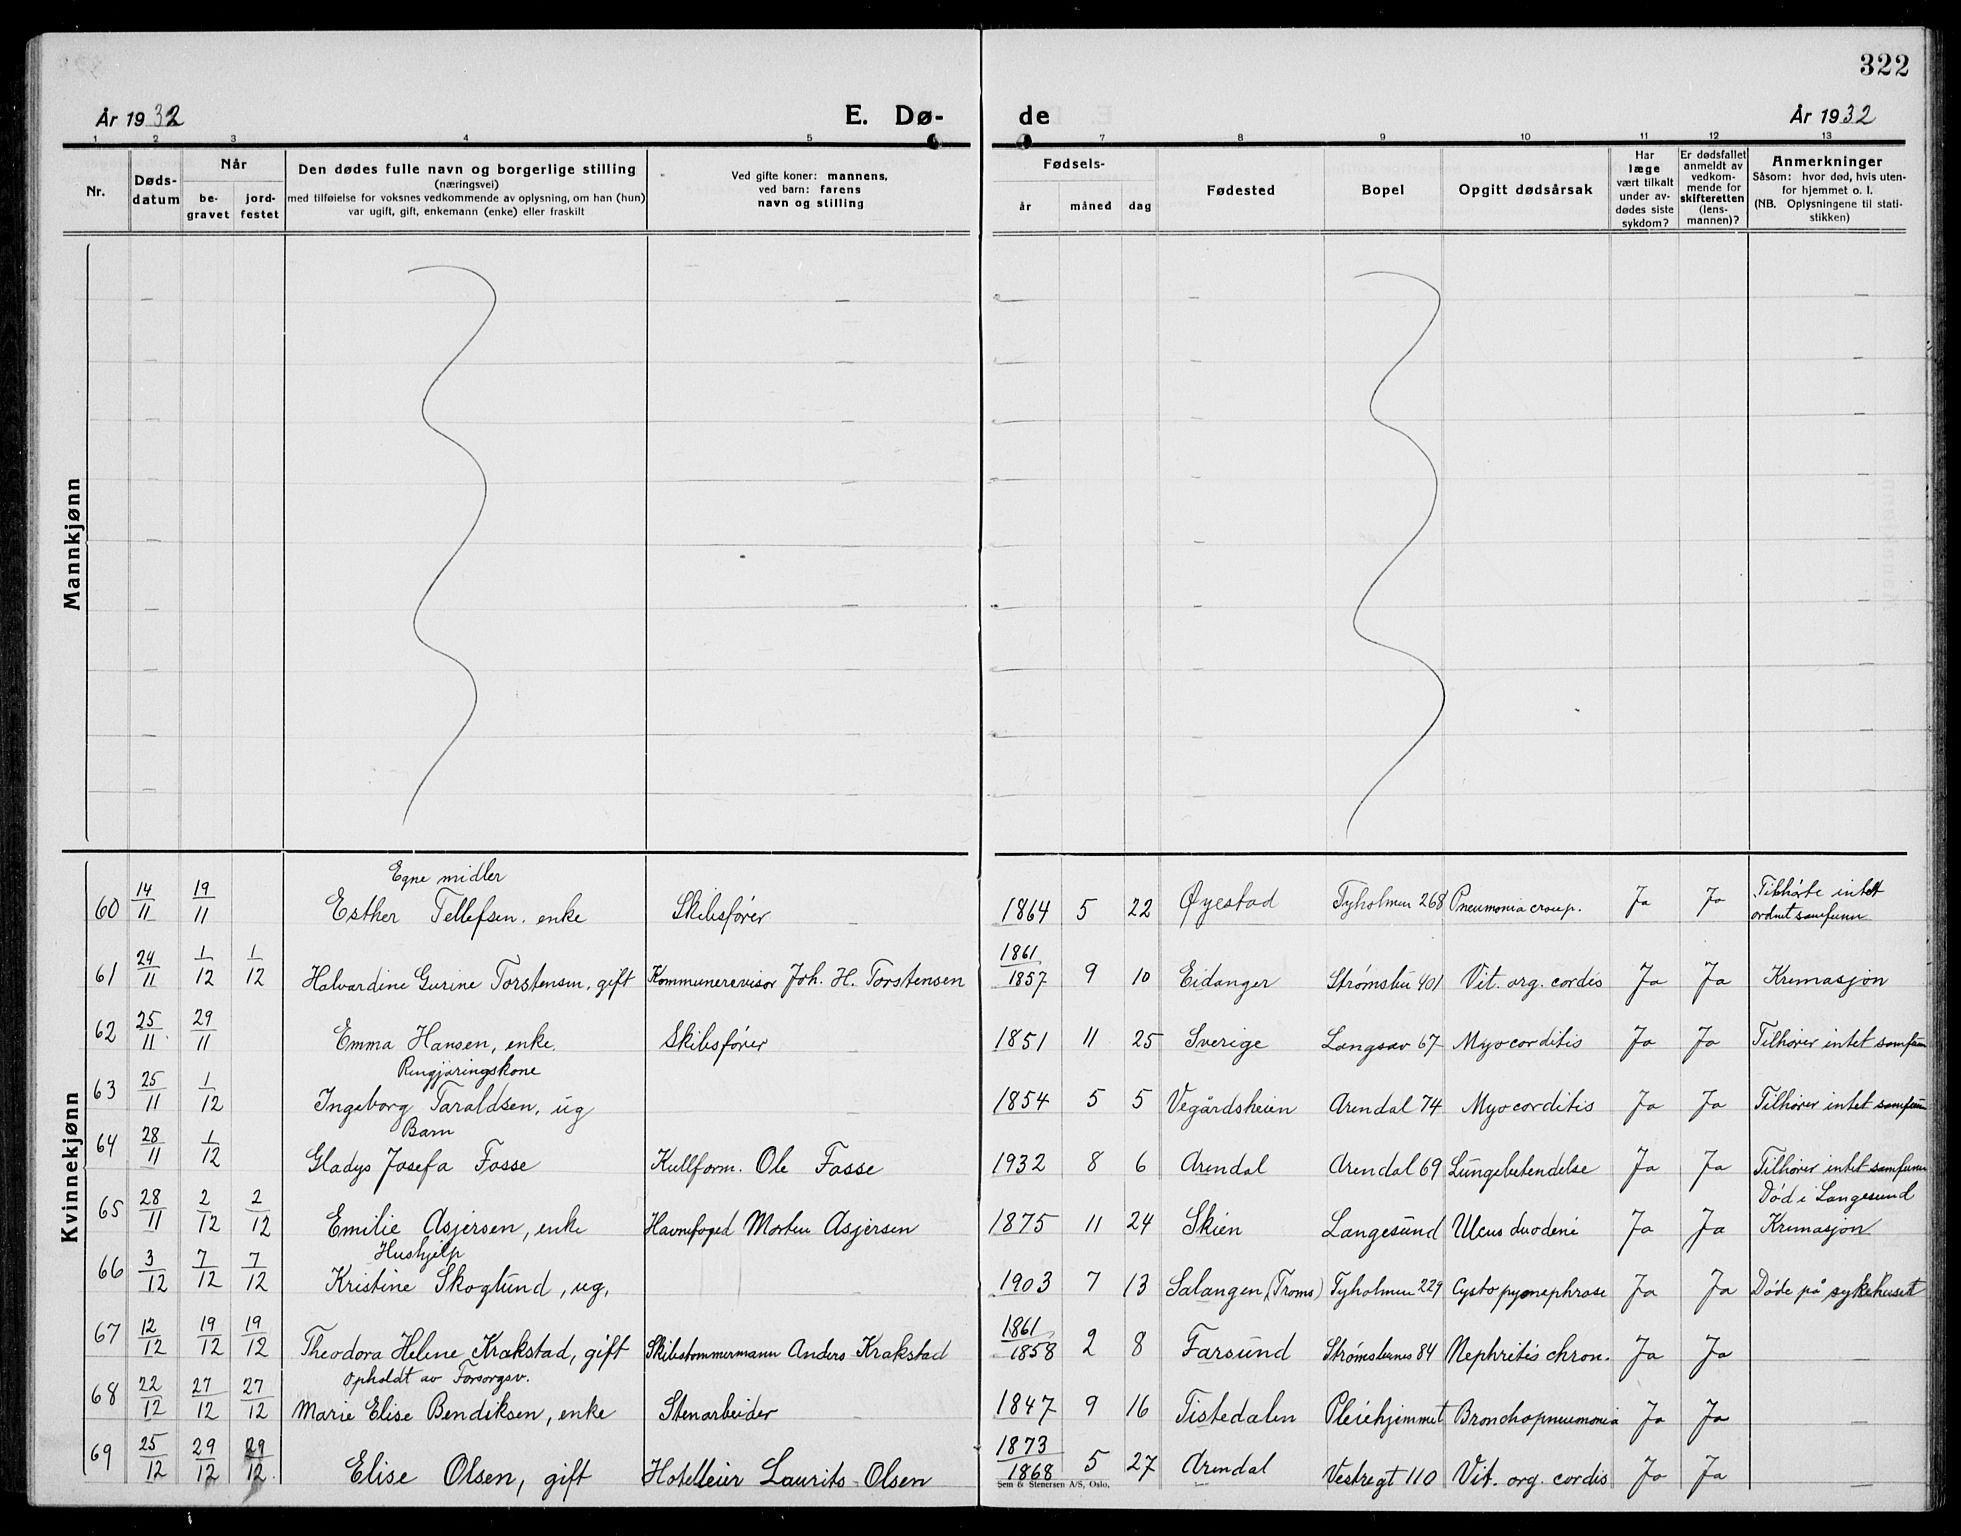 322
År 1932 E. Dø- de År 1932
1 2 3 4 5 7 8 9 10 11 12 13
Nr.
Døds-
datum
Når
be-
gravet
jord-
festet
Den dødes fulle navn og borgerlige stilling
(næringsvei)
med tilføielse for voksnes vedkommende av oplysning, om han (hun)
var ugift, gift, enkemann (enke) eller fraskilt
Ved gifte koner: mannens,
ved barn: farens
navn og stilling
Fødsels-
år måned dag
Fødested
Bopel
Opgitt dødsårsak
Har
læge
vært tilkalt
under av-
dødes siste
sykdom?
Er dødsfallet
anmeldt av
vedkom-
mende for
skifteretten
(lens-
mannen)?
Anmerkninger
Såsom: hvor død, hvis uten-
for hjemmet o. l.
(NB. Oplysningene til stati-
stikken)
Mannkjønn
Kvinnekjønn
Egne midler
60 14/11 19/11 Esther Tellefsen. enke Skibsfører 1864 5 22 Øyestad Tyholmen 268 Pneumonia croup. Ja Ja Tilhørte intet
ordnet samfunn
61 24/11 1/12 1/12 Halvardine Gurine Torstensen, gift Kommunerevisor Joh. H. Torstensen 1861/1857 9 10 Eidanger Strømsbu 401 Vit. org. cordis Ja Ja Kremasjon
62 25/11 29/11 Emma Hansen, enke. Skibsfører 1851 11 25 Sverige Langsæv 67 Myocorditis Ja Ja Tilhører intet samfunn
Rengjøringskone
63 25/11 1/12 Ingeborg Taraldsen, ug 1854 5 5 Vegårdsheien Arendal 74 Myocorditis Ja Ja Tilhører intet samfunn
Barn
64 28/11 1/12 Gladys Josefa Fosse Kullform. Ole Fosse 1932 8 6 Arendal Arendal 69 Lungebetendelse Ja Ja Tilhører intet samfunn
65 28/11 2/12 2/12 Emilie Asjersen, enke Havnefoged Morten Asjersen 1875 11 24 Skien Langesund Ulcus duodeni Ja Ja Død i Langesund
Kremasjon
Hushjelp
66 3/12 7/12 7/12 Kristine Skoglund, ug. 1903 7 13 Salangen (Troms) Tyholmen 229 Cystopyonephrose Ja Ja Døde på sykehuset
67 12/12 19/12 19/12 Theodora Helene Krakstad, gift Skibstømmermann Anders Krakstad 1861/1858 2 8 Farsund Strømsbunes 84 Nephritis chron. Ja Ja
Opholdt av Forsorgsv.
68 22/12 27/12 27/12 Marie Elise Bendiksen, enke Stenarbeider 1847 9 16 Tistedalen Pleiehjemmet Bronchopneumonia Ja Ja
69 25/12 29/12 29/12 Elise Olsen, gift Hotelleier Laurits Olsen 1873/1868 5 27 Arendal Vestregt 110 Vit. org. cordis Ja Ja
Sem & Stenersen A/S, Oslo.